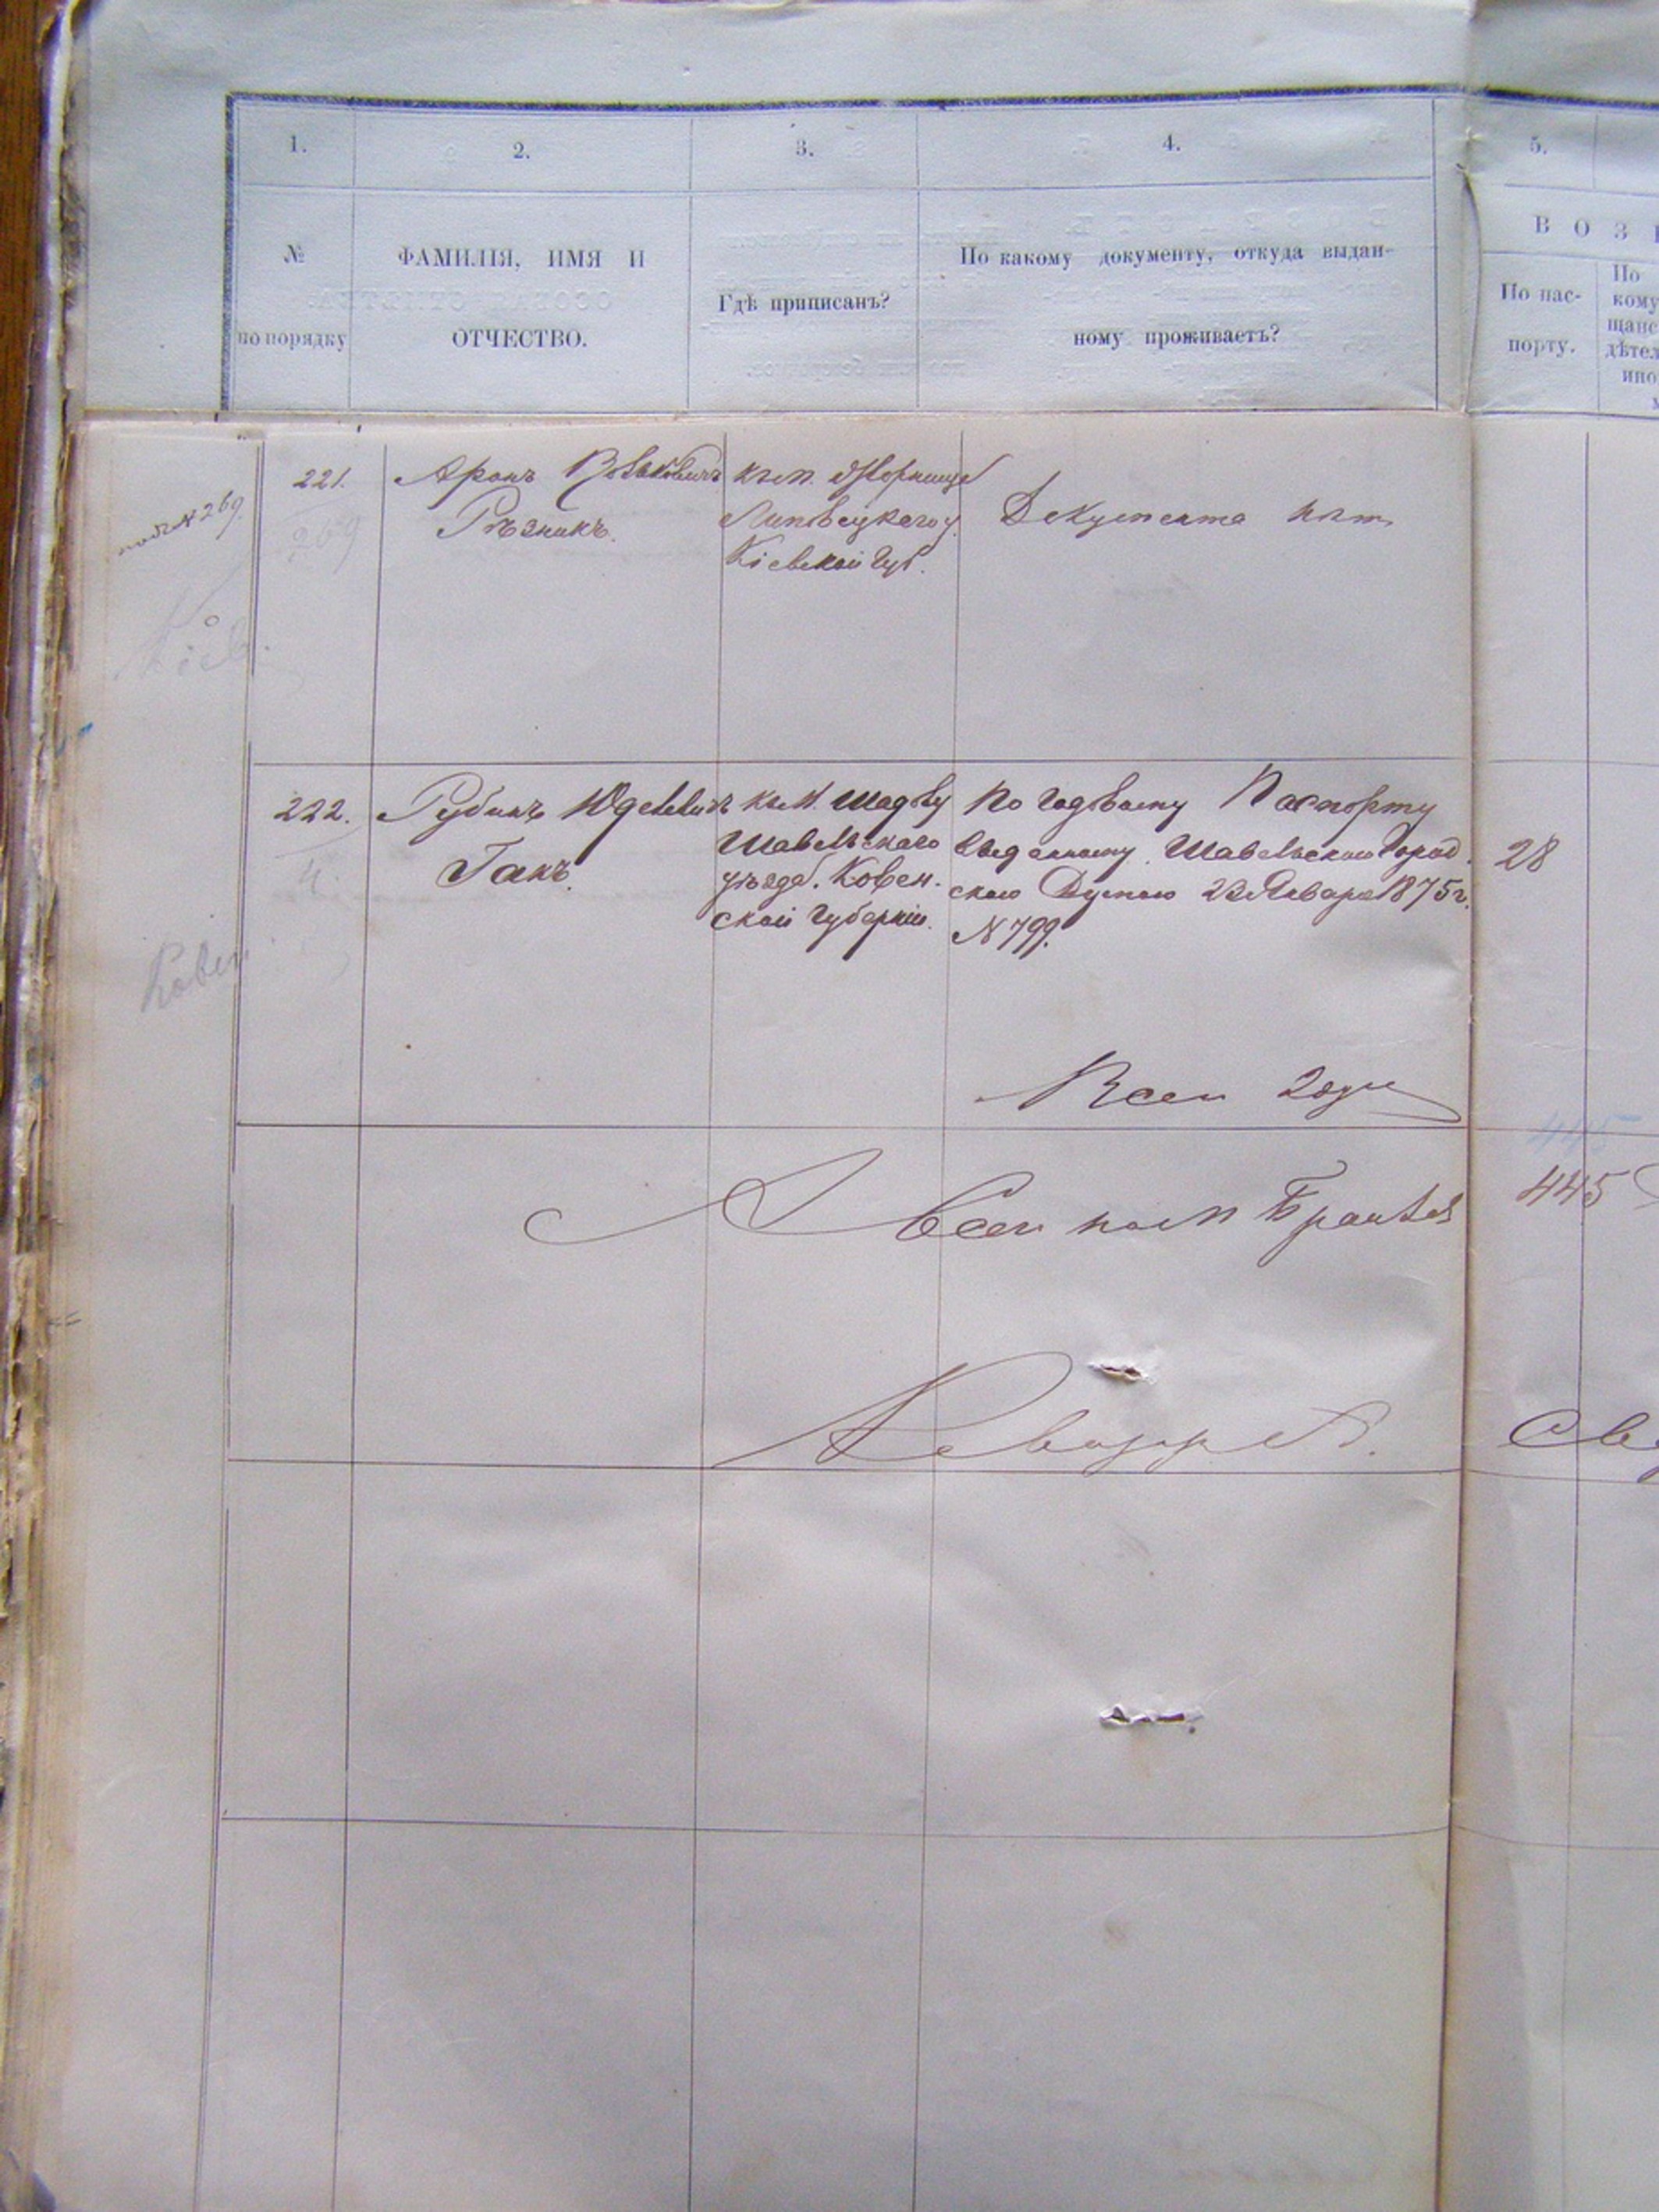 1. 2. 3. 4. 5.
№ по порядку
ФАМИЛІЯ, ИМЯ И
ОТЧЕСТВО.
Гдѣ приписанъ?
По какому документу, откуда выдан-
ному проживаетъ?
В О З
По пас-
порту.
По
кому
щанс
дѣтел
ино
подъ № 269.
221. Аронъ Вольковичъ
Рѣзникъ.
269
къ м.
Липовецкаго у.
Кіевской Губ.
Документа нѣтъ
Кіев.
222. Рубинъ Юделевичъ
Гакъ.
4.
къ м. Шадову
Шавельскаго
уѣзда. Ковен-
ской Губерніи.
По годовому Паспорту
выданному Шавельскою Город
скою Думою 23 Января 1875 г.
№ 799.
28
Ковен.
445
445